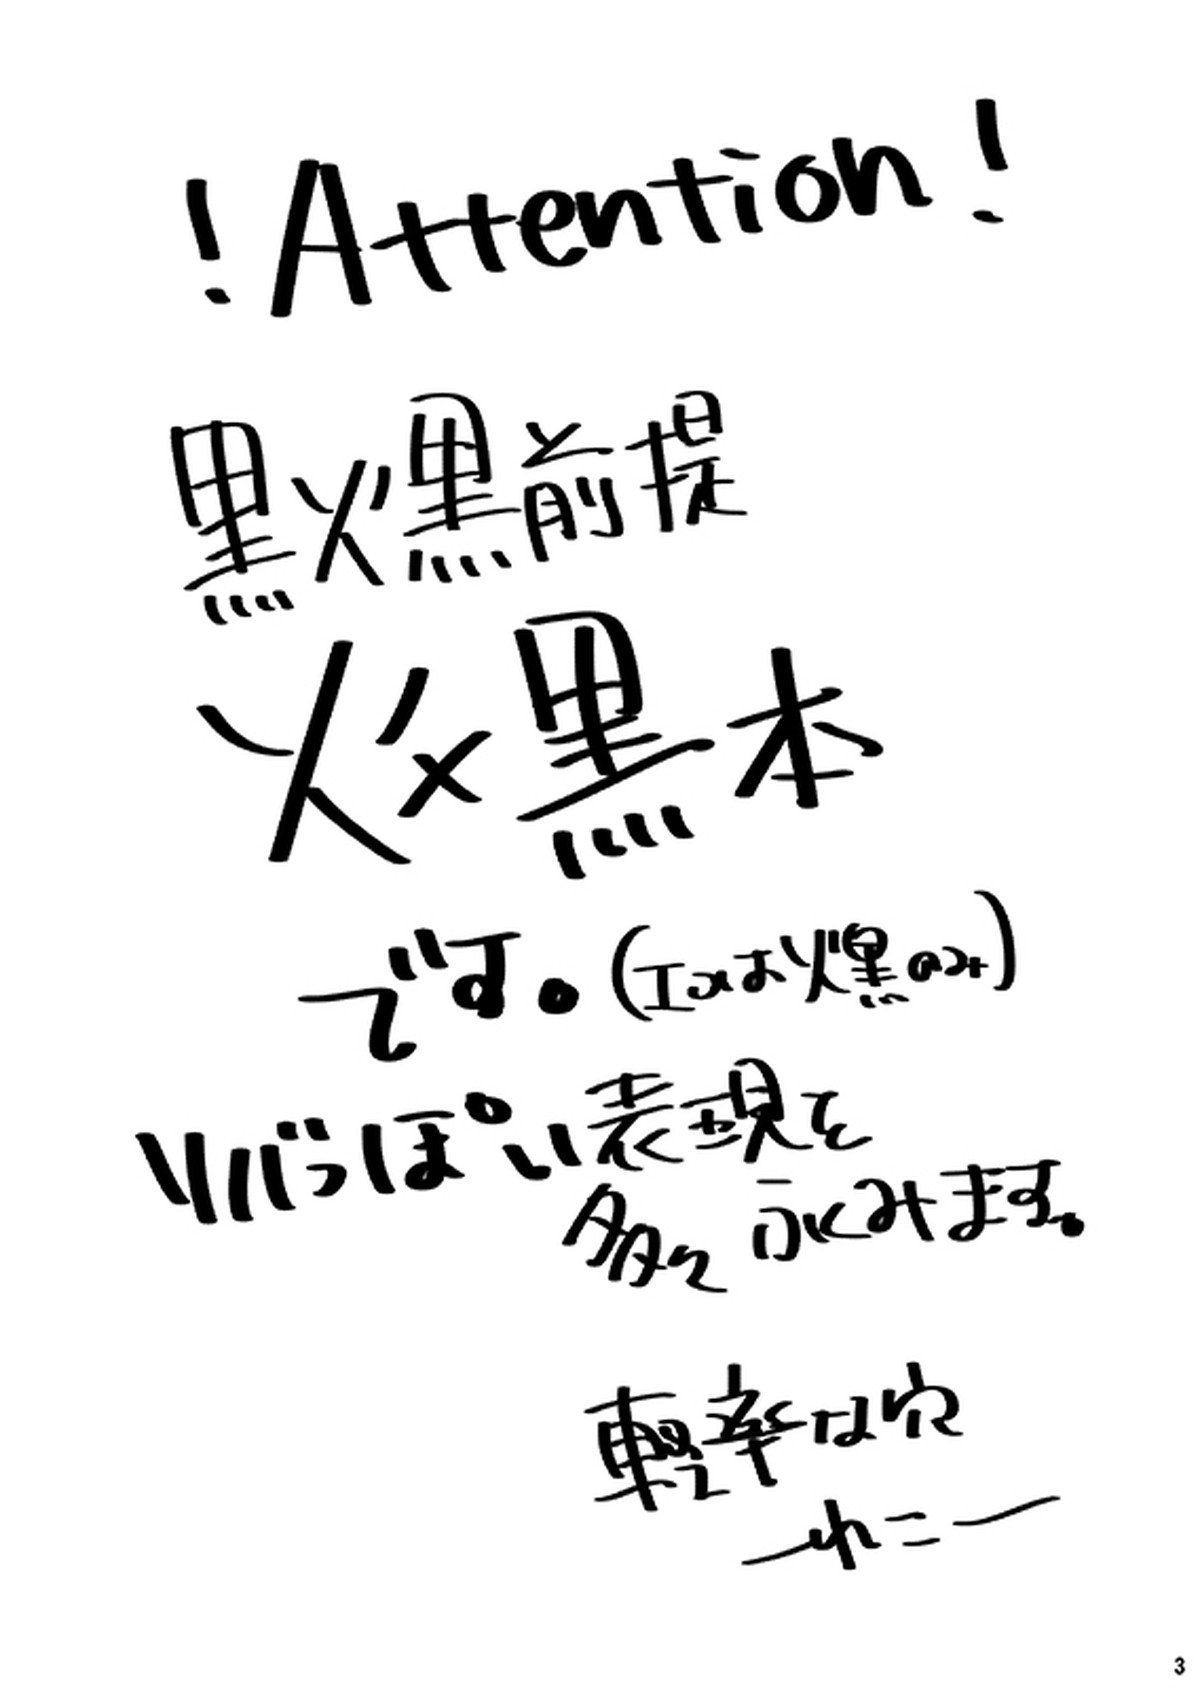 !Attention!
黒火黒前提
火×黒本
です。(エロは火黒のみ)
リバっぽい表現を
多々含みます。
軽率な穴
ねこ
3